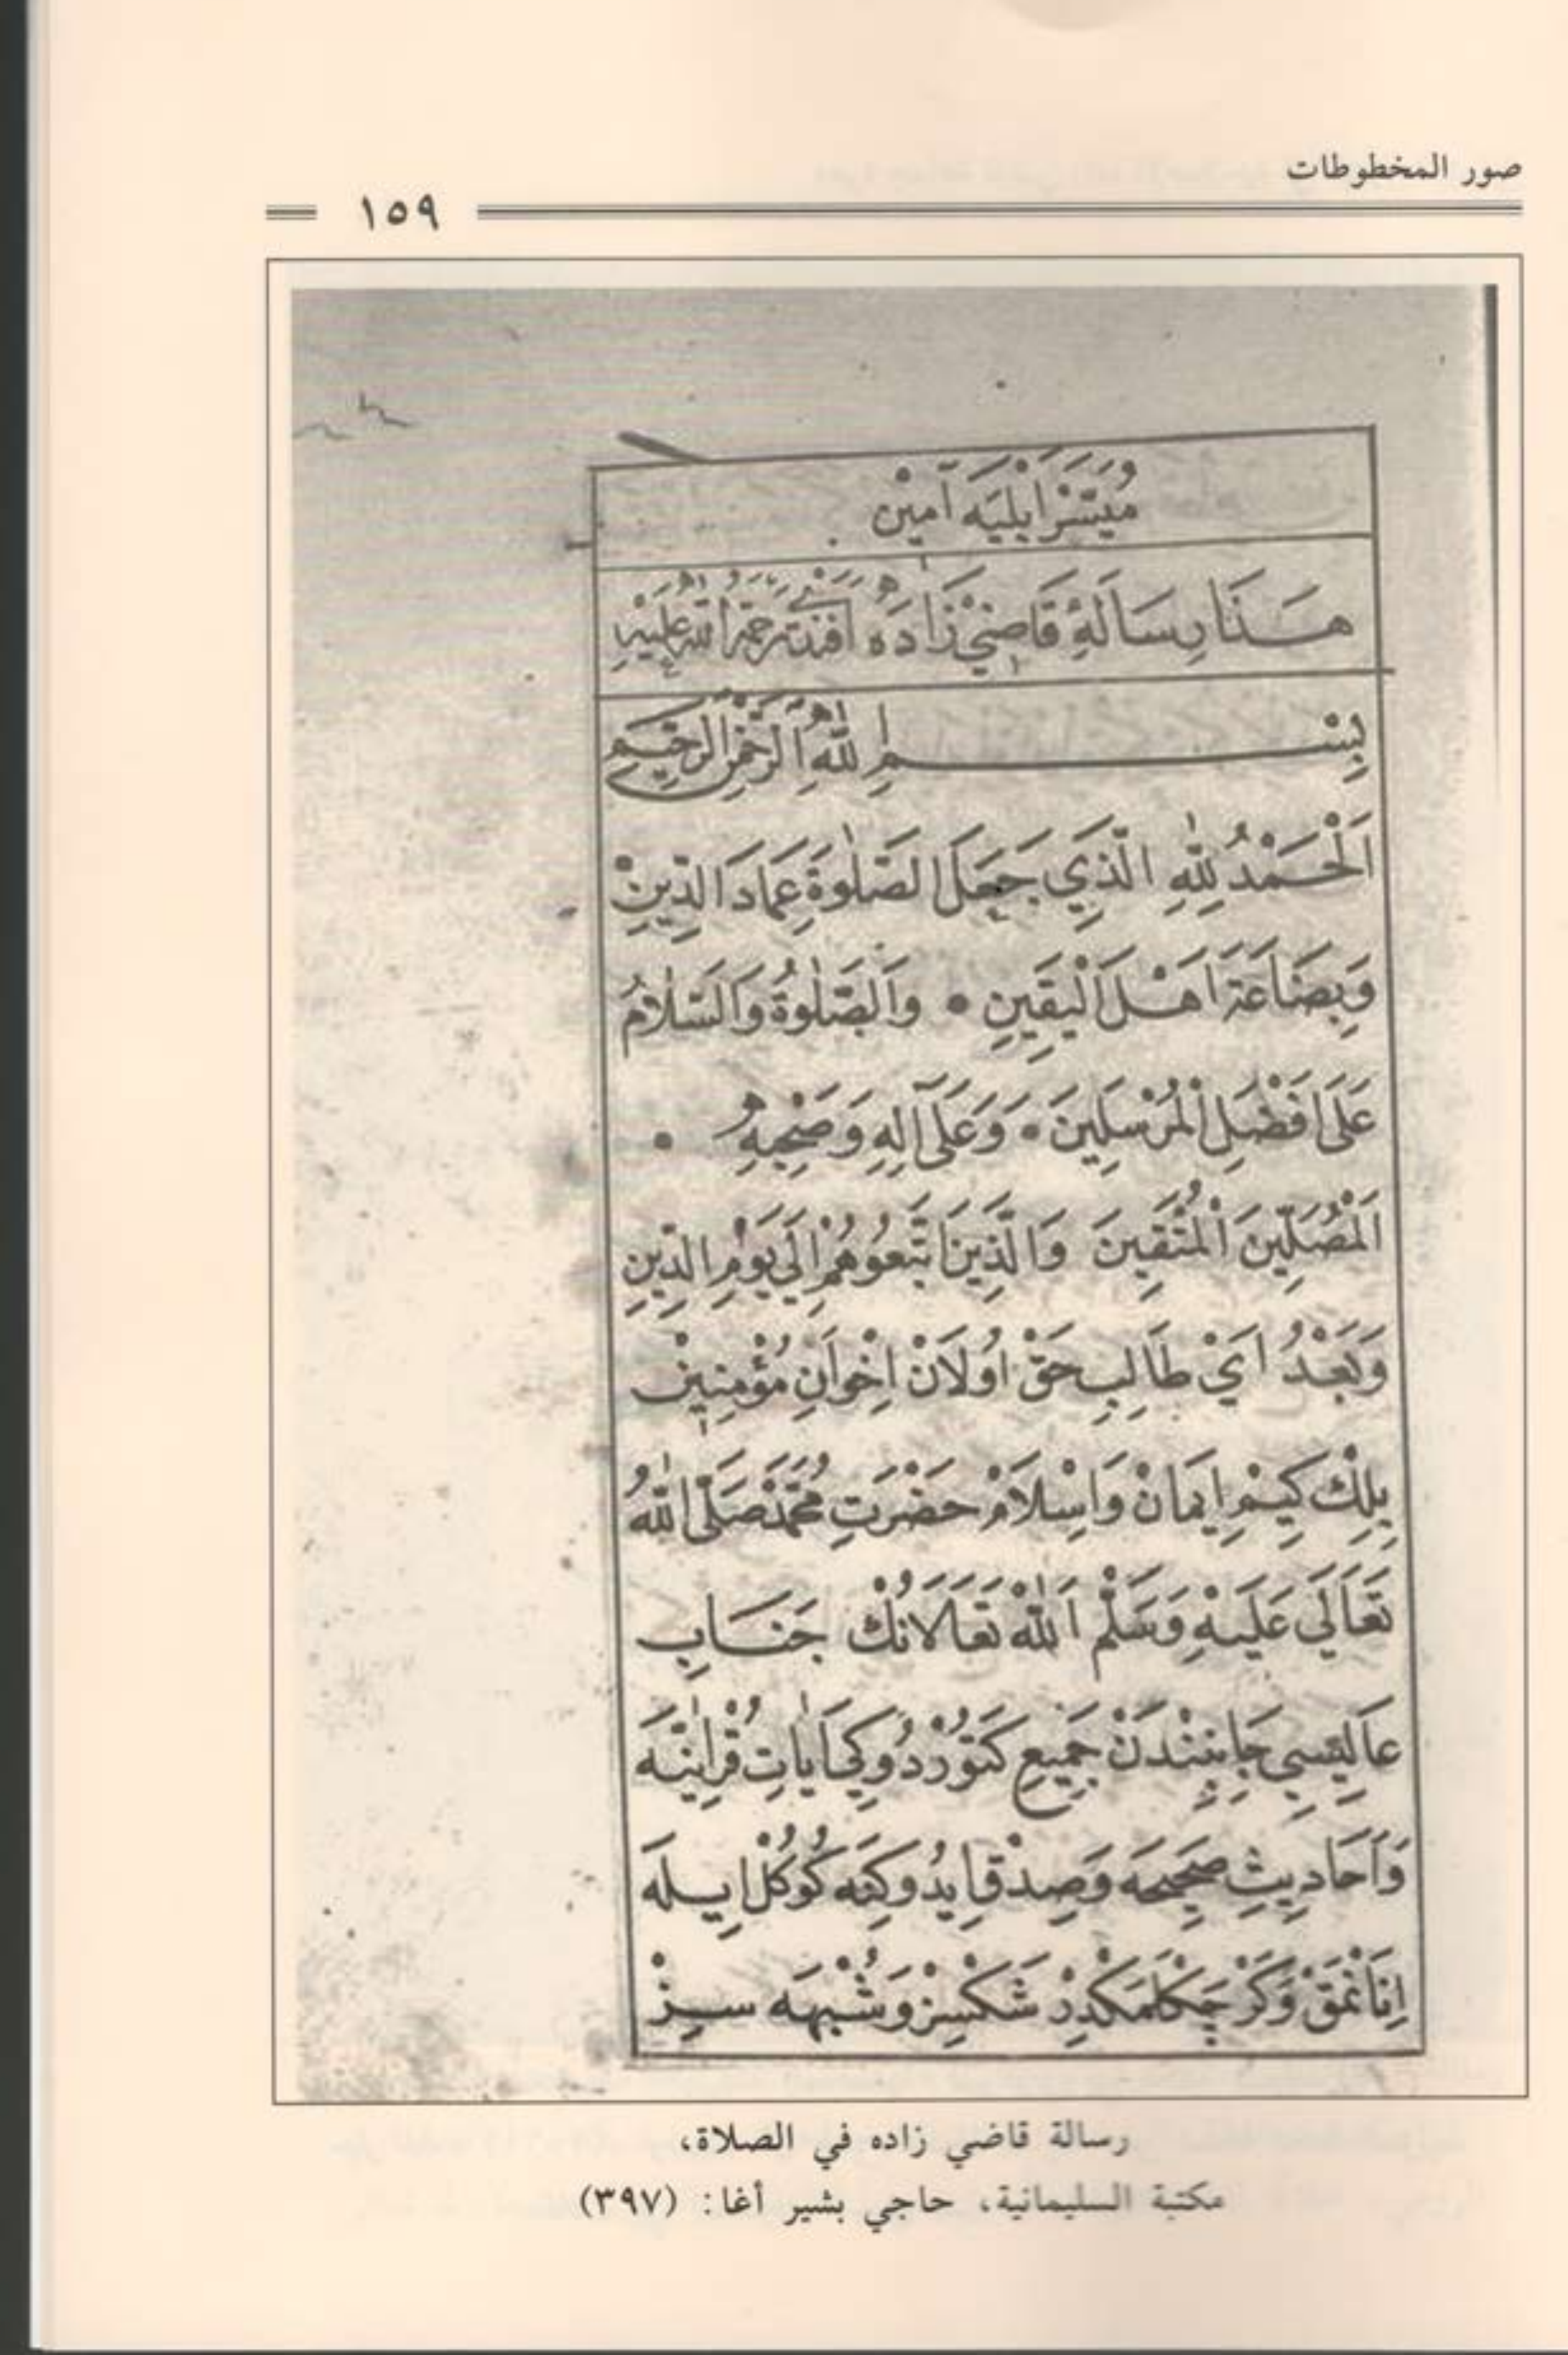 صور المخطوطات
١٥٩
مُيَسَّرْ اَيْلِيَه آمِيْن
هَذَا رِسَالَةِ قَاضِيْ زَادَه اَفَنْدِيْ رَحْمَةُ اللّٰهِ عَلَيْهِ
بِسْمِ اللّٰهِ الرَّحْمٰنِ الرَّحِيْمِ
اَلْحَمْدُ لِلّٰهِ الَّذِي جَعَلَ الصَّلٰوةَ عِمَادَ الدِّينِ
وَبِضَاعَةَ اَهْلَ الْيَقِينِ • وَالصَّلٰوةُ وَالسَّلَامُ
عَلَى اَفْضَلِ الْمُرْسَلِينَ • وَعَلَى آلِهِ وَصَحْبِهِ •
اَلْمُصَلِّينَ الْمُتَّقِينَ وَالَّذِينَ اتَّبَعُوهُمْ اِلَي يَوْمِ الدِّينِ
وَبَعْدُ اَيْ طَالِبِ حَقْ اُولَانْ اِخْوَانِ مُؤْمِنِينْ
بِلِكْ كِيمْ اِيمَانْ وَاِسْلَامْ حَضْرَتِ مُحَمَّدْ صَلَّى اللّٰهُ
تَعَالَي عَلَيْهِ وَسَلَّمْ اَللّٰهْ تَعَالَانُكْ جَنَابِ
عَالِيسِي جَانِبِنْدَنْ جَمِيعِ كَتُورْدُوكِي اٰيَاتِ قُرْاٰنِيَّه
وَاَحَادِيثِ صَحِيحَه وَصِدْقِ ايدُوكِنَه كُوكُلْ اِيلَه
اِنَانْمَقْ وَكَرْچَكْلَمَكْدِرْ شَكْسِزْ وَشُبْهَه سِزْ
رسالة قاضي زاده في الصلاة،
مكتبة السليمانية، حاجي بشير أغا: (٣٩٧)